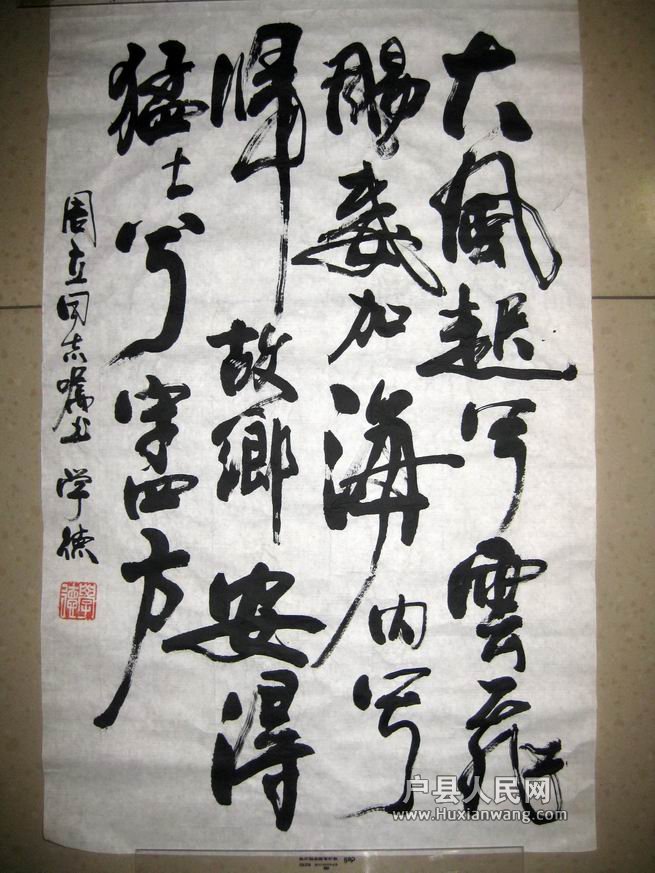 大風起兮雲飛
揚威加海内兮
歸故鄉安得
猛士兮守四方
周立同志嘱书 学德
學德
户县人民网
www.Huxianwang.com
deli